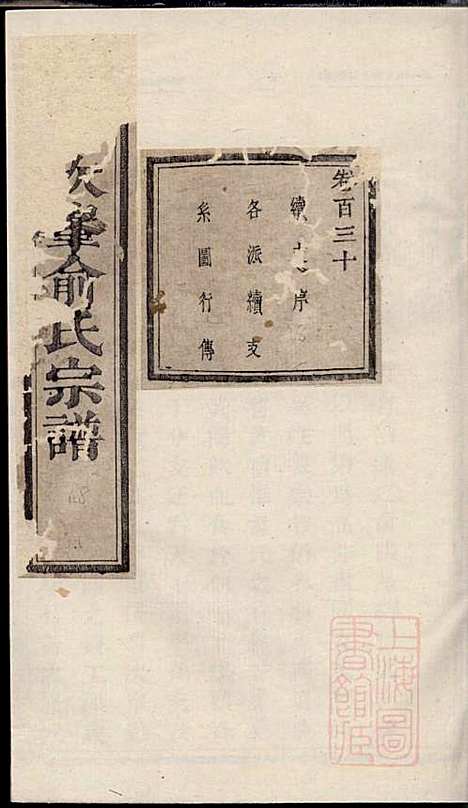 卷百三十
續
序
各派續支
系圖行傳
峯俞氏宗譜
上海圖
書館藏